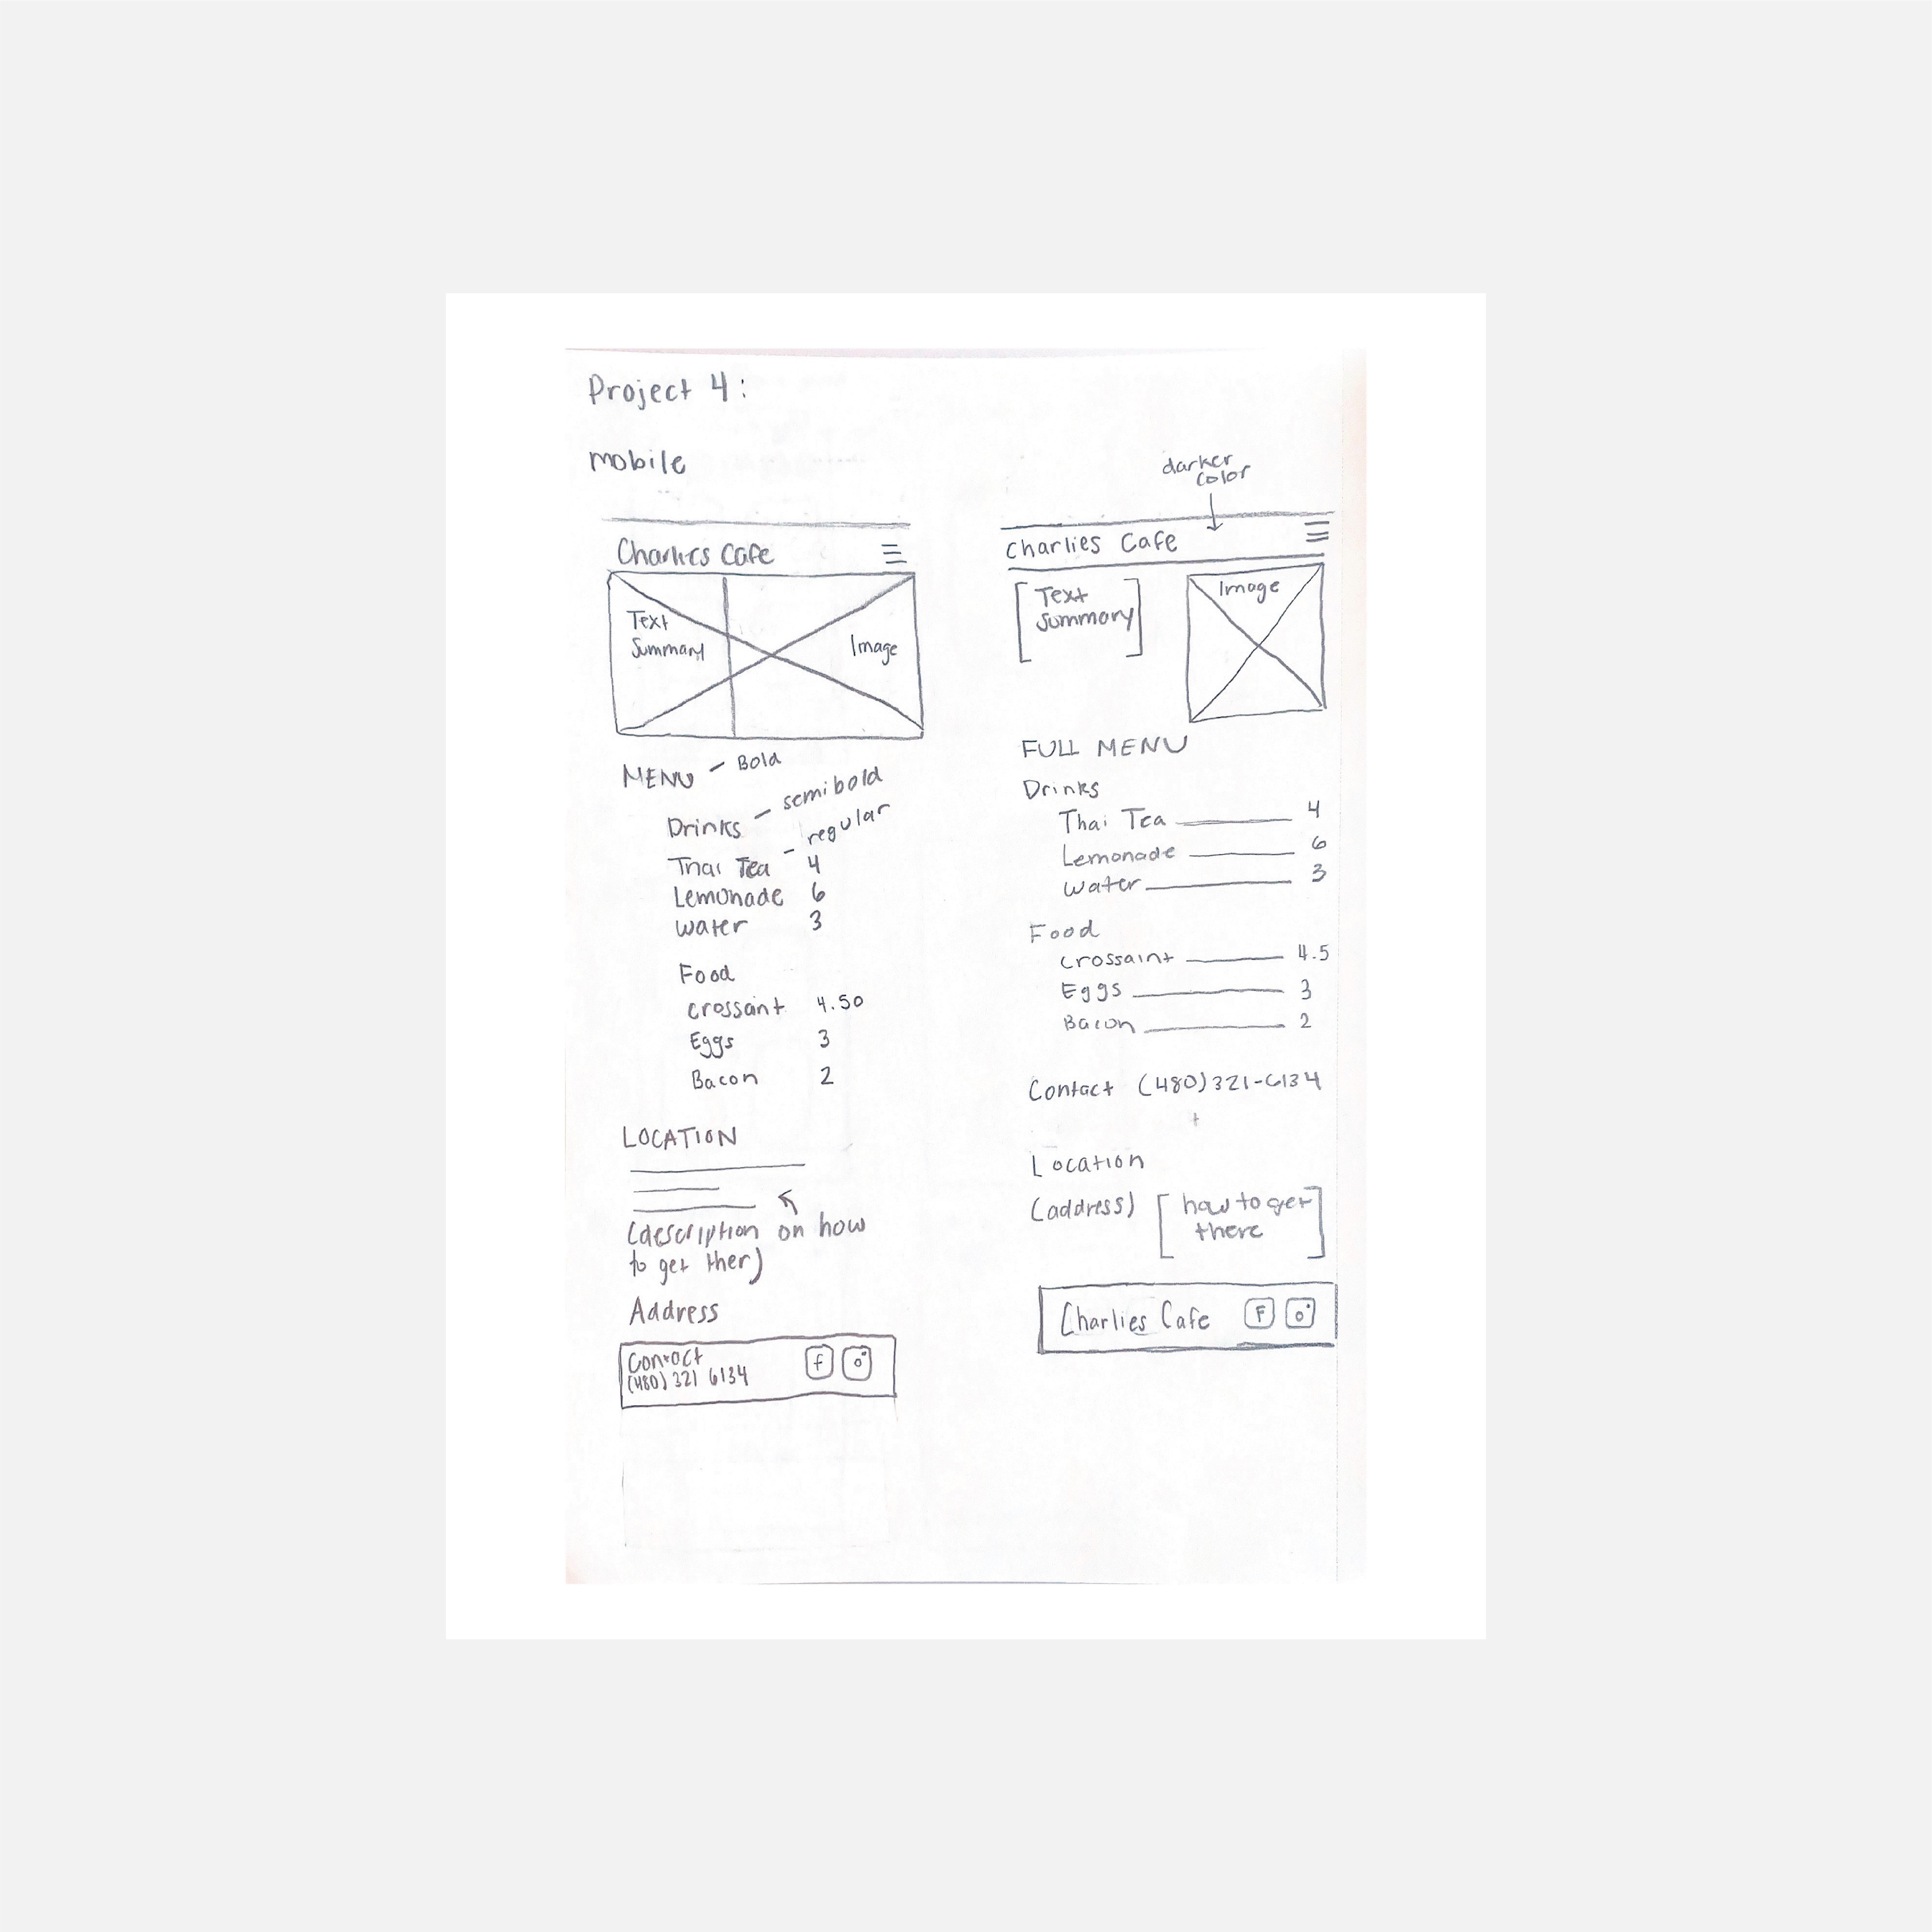 Project 4:
mobile
Charlies Cafe
Text
Summary
Image
MENU - Bold
Drinks - semibold
Thai Tea - regular 4
Lemonade 6
water 3
Food
crossant 4.50
Eggs 3
Bacon 2
LOCATION
(description on how
to get ther)
Address
Contact
(480) 321 6134
f
darker
color
Charlies Cafe
Text
Summary
Image
FULL MENU
Drinks
Thai Tea 4
Lemonade 6
water 3
Food
crossaint 4.5
Eggs 3
Bacon 2
Contact (480) 321-6134
Location
(address) [how to get
there]
Charlies Cafe F